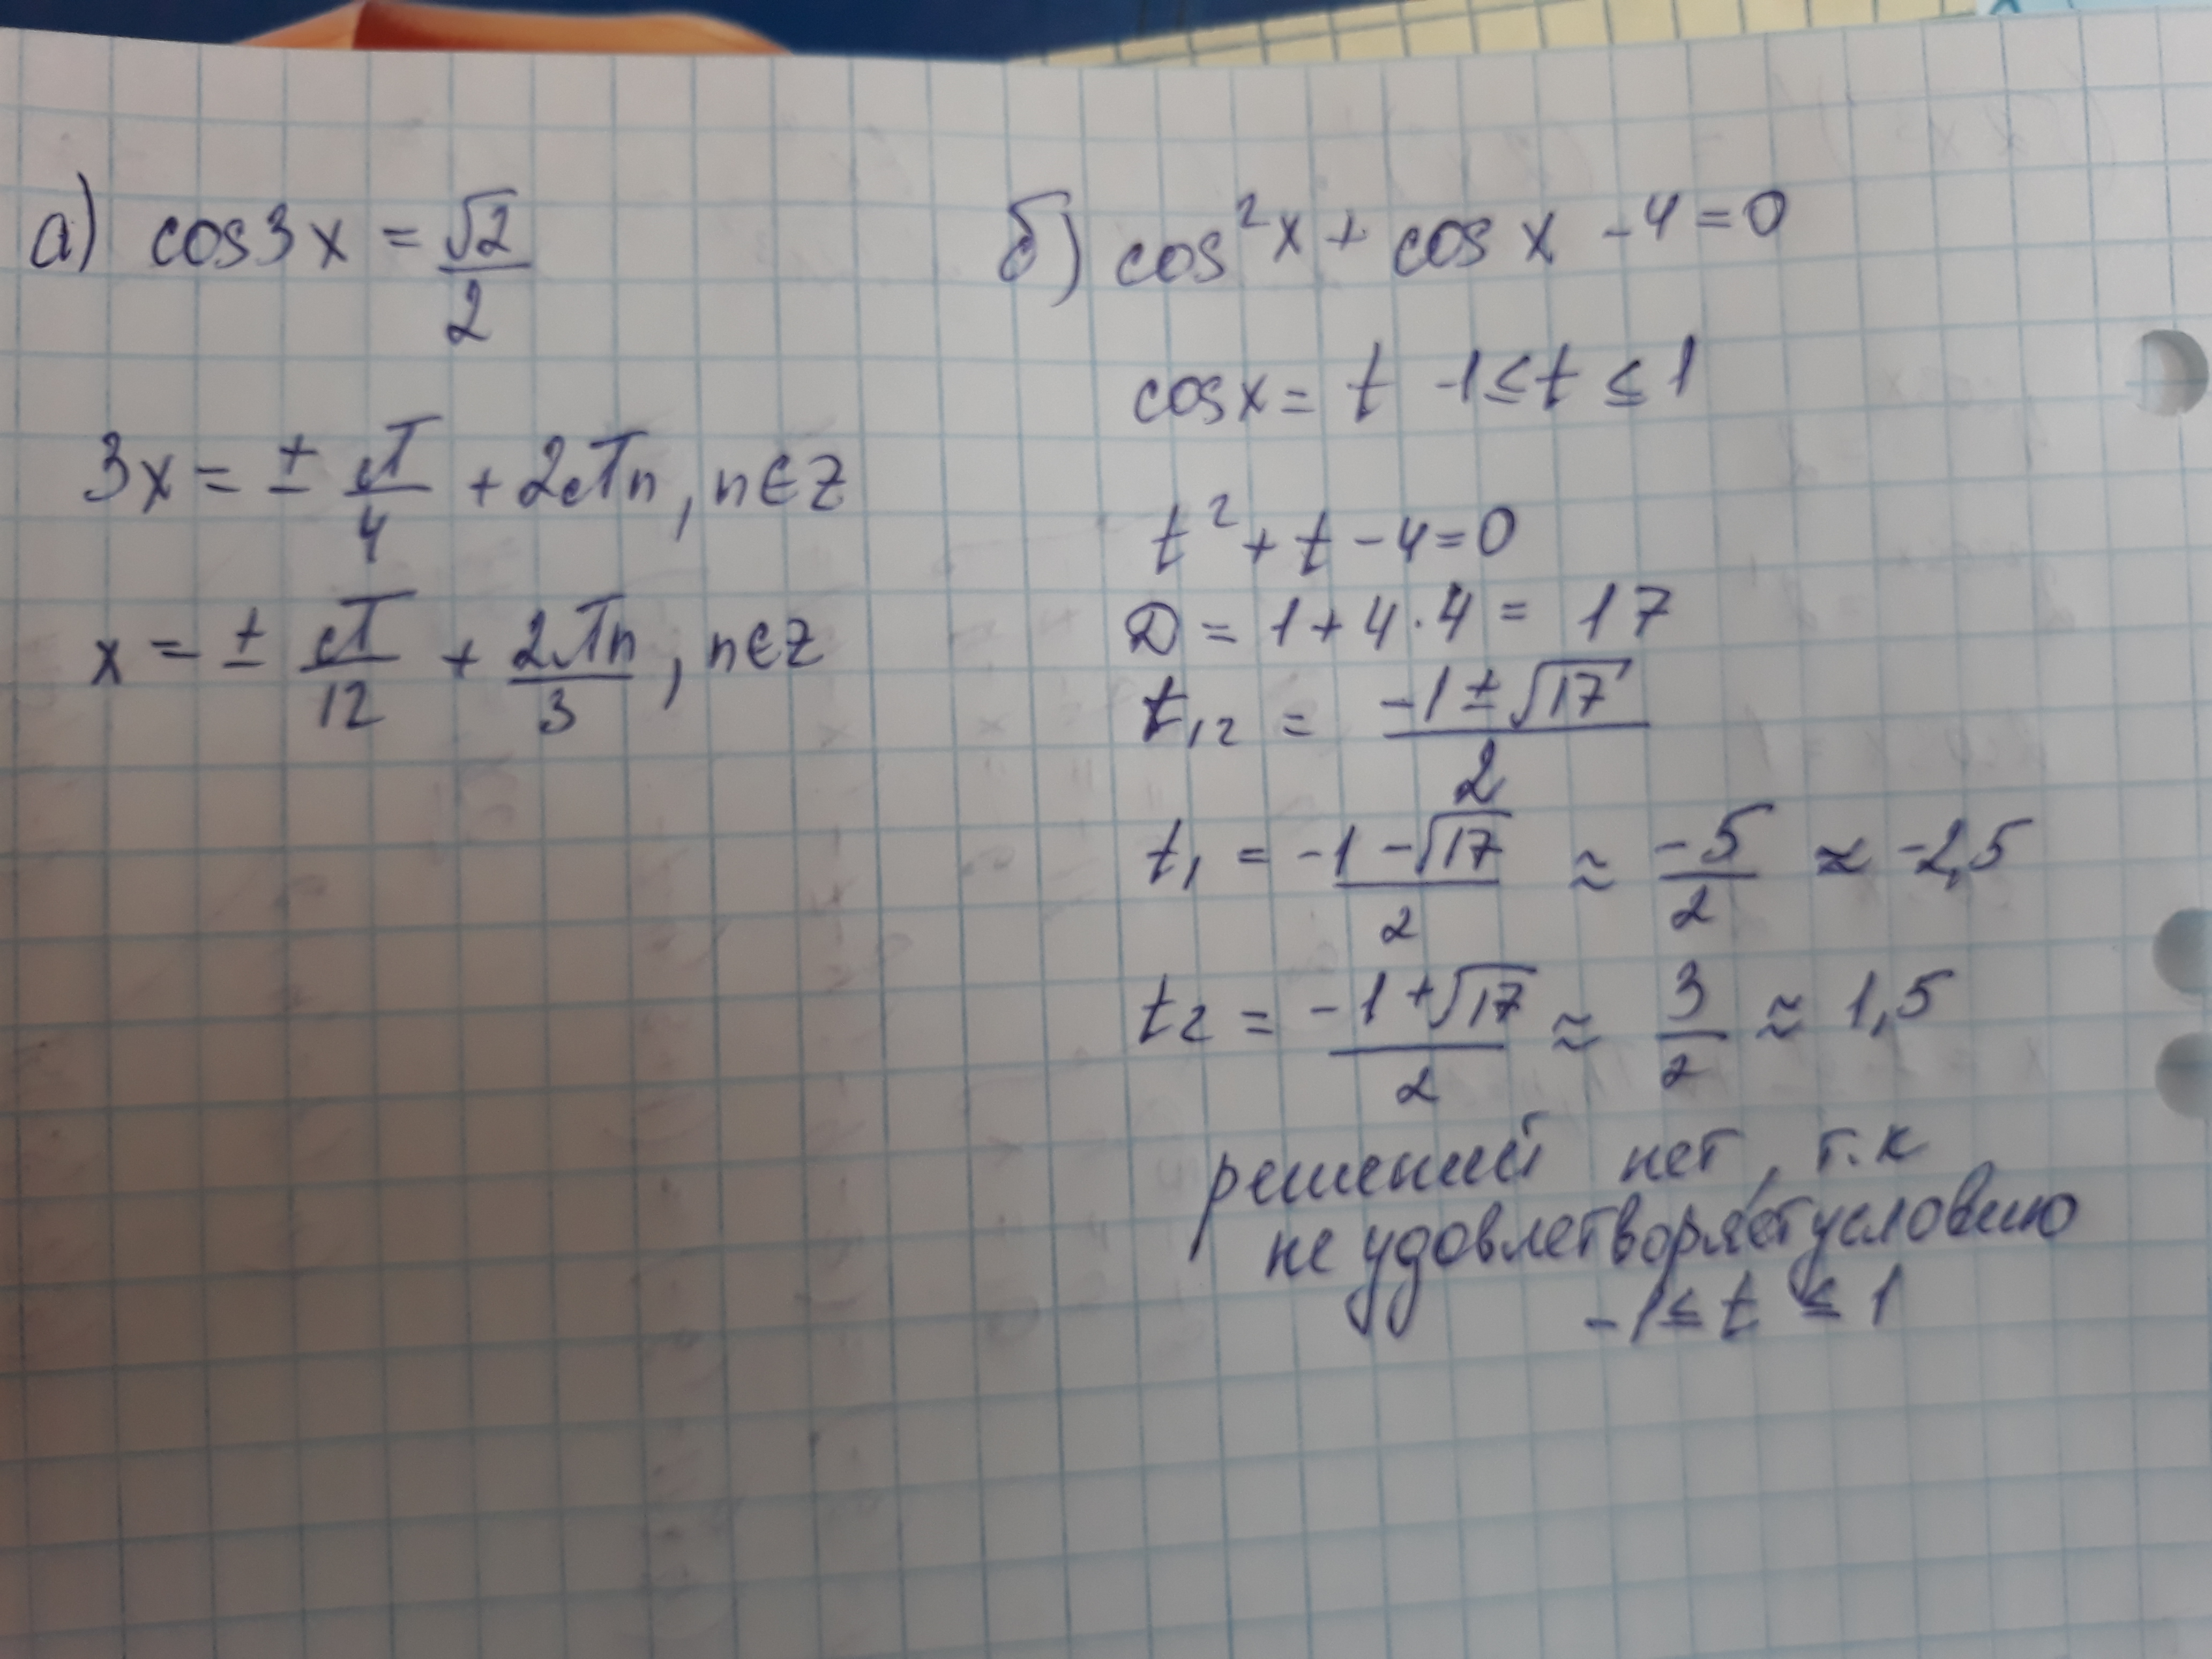 а) cos3x = √2/2
3x = ± π/4 + 2πn, n∈Z
x = ± π/12 + 2πn/3, n∈Z
б) cos²x + cos x - 4 = 0
cosx = t -1 ≤ t ≤ 1
t² + t - 4 = 0
D = 1 + 4·4 = 17
t₁₂ = (-1 ± √17)/2
t₁ = (-1 - √17)/2 ≈ -5/2 ≈ -2,5
t₂ = (-1 + √17)/2 ≈ 3/2 ≈ 1,5
решений нет, т.к
не удовлетворяет условию
-1 ≤ t ≤ 1